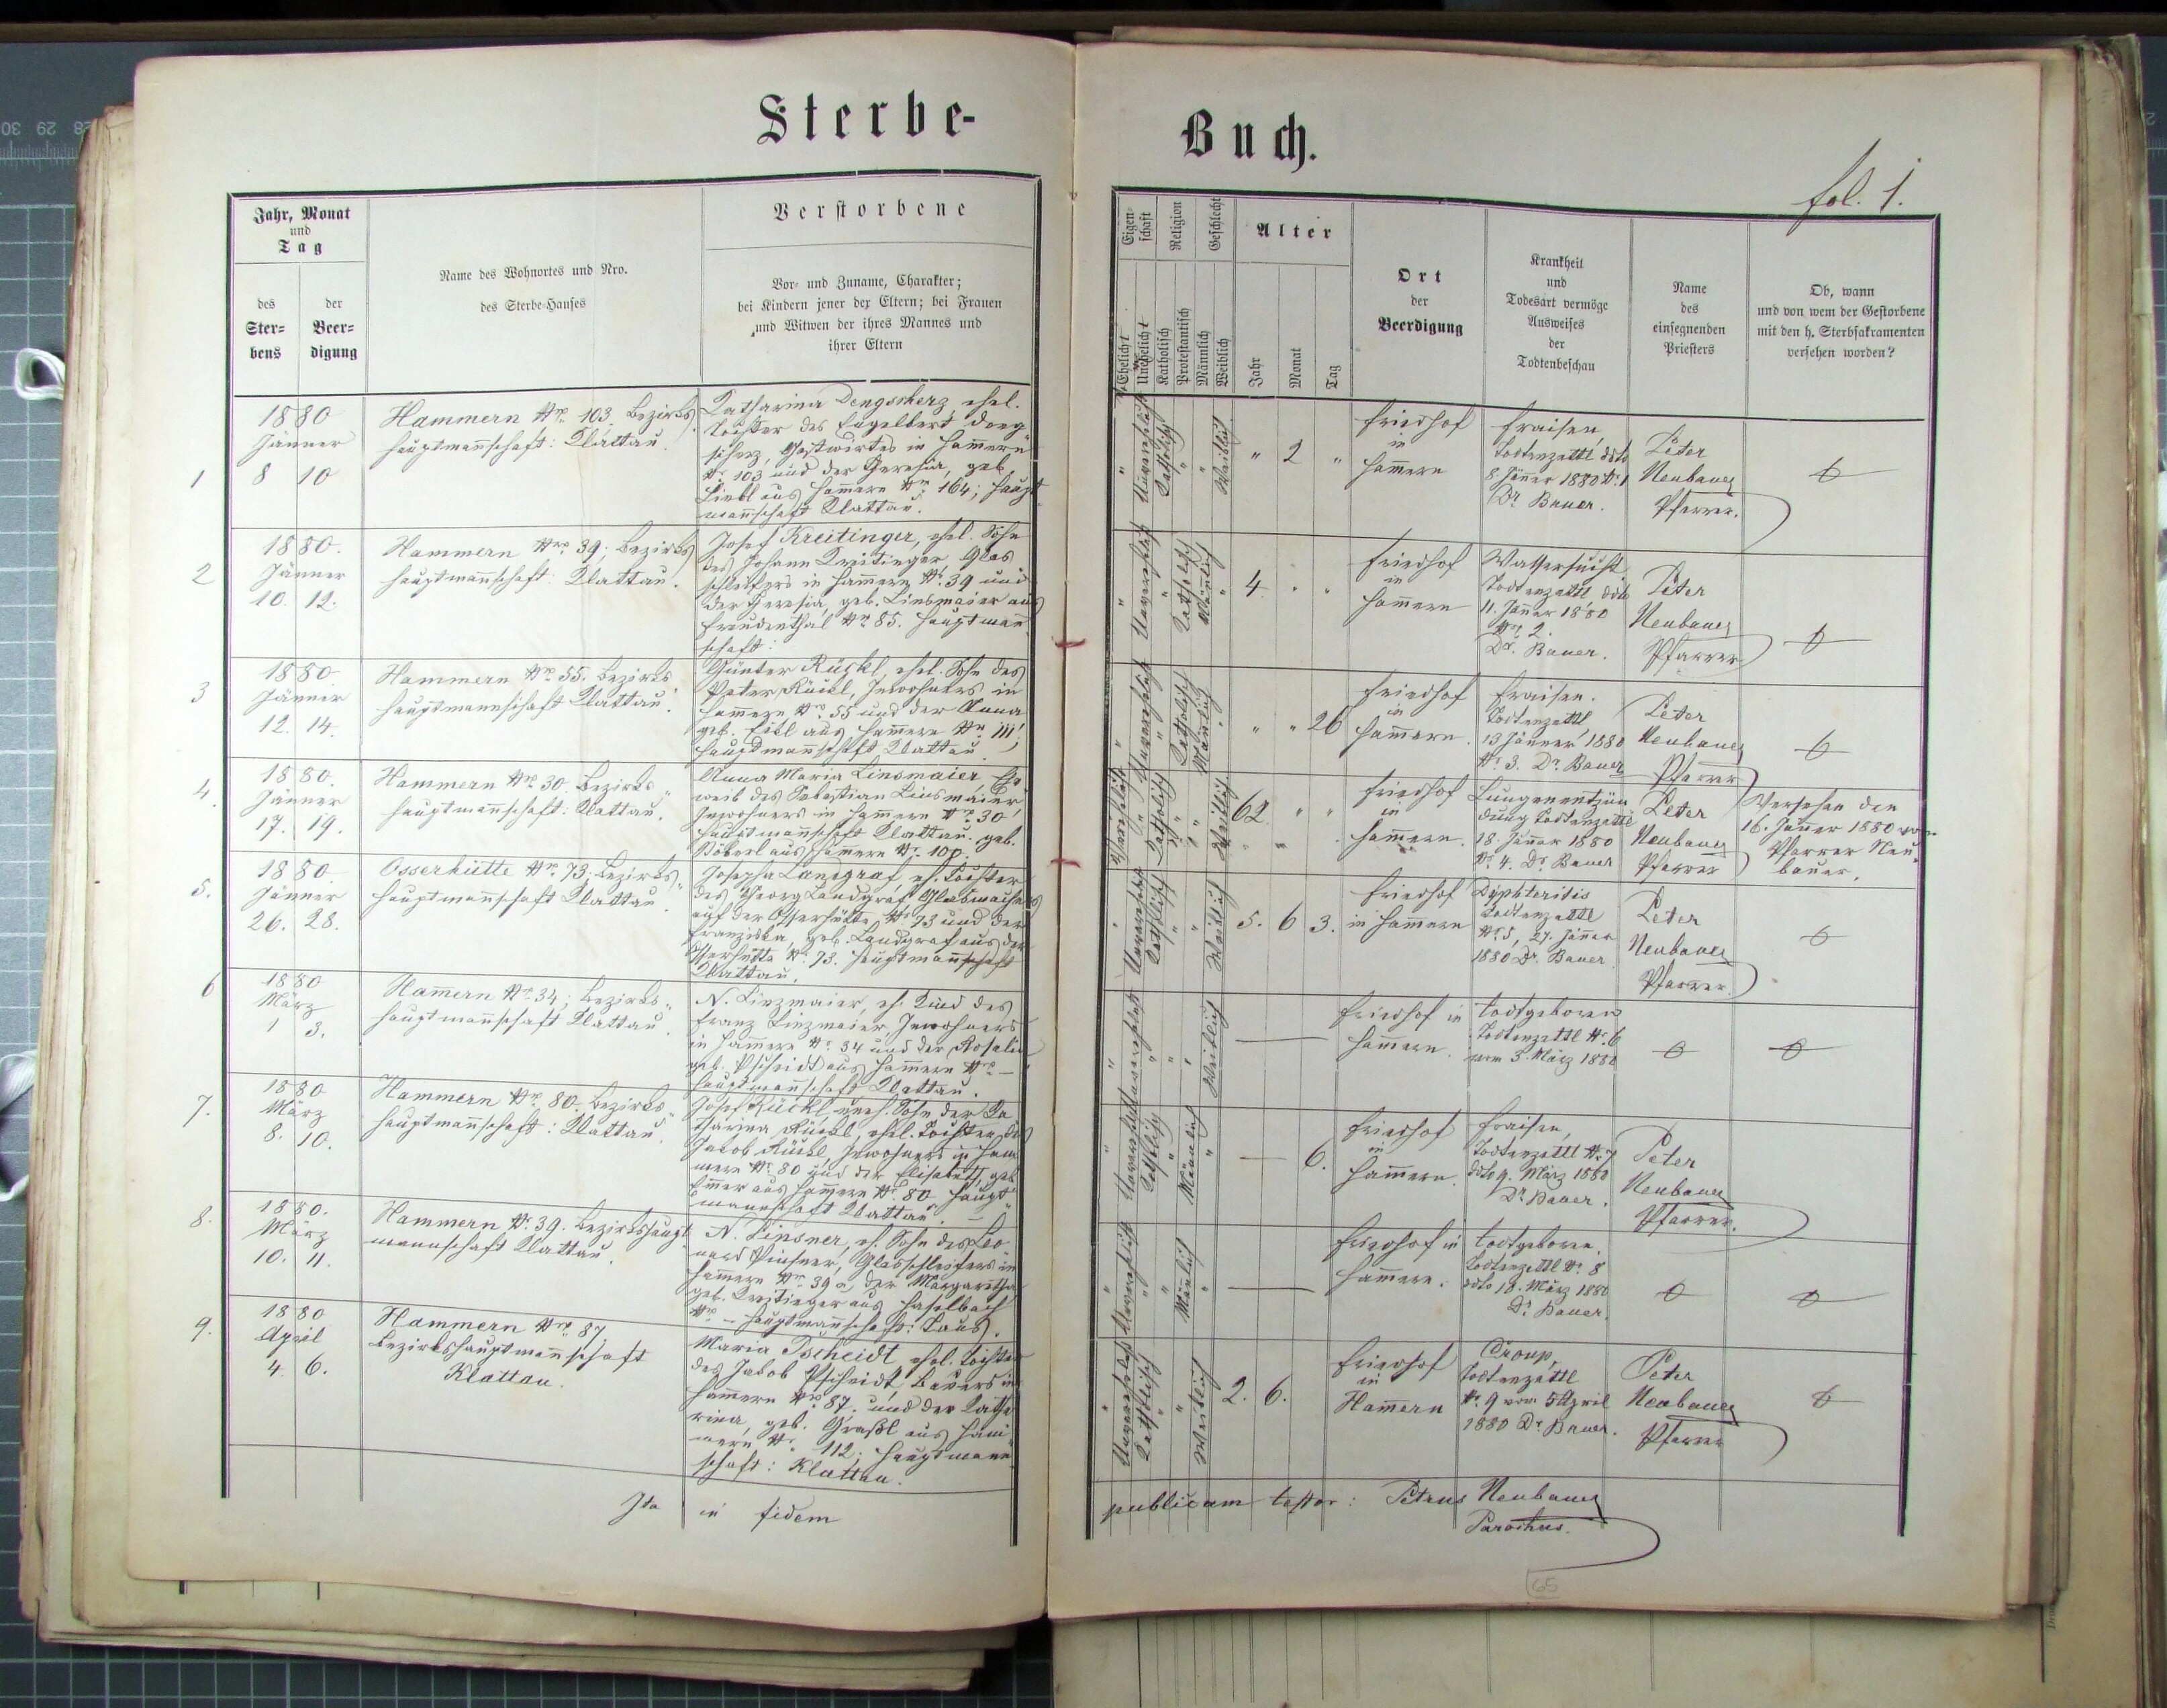 Sterbe-
Buch.
fol. 1.
Jahr, Monat
und
Tag
des
Ster-
bens
der
Beer-
digung
Name des Wohnortes und Nro.
des Sterbe-Hauses
Verstorbene
Vor- und Zuname, Charakter;
bei Kindern jener der Eltern; bei Frauen
und Witwen der ihres Mannes und
ihrer Eltern
Eigen-
schaft
Religion
Geschlecht
Ehelicht
Unehelicht
Katholisch
Protestantisch
Männlich
Weiblich
Alter
Jahr
Monat
Tag
Ort
der
Beerdigung
Krankheit
und
Todesart vermöge
Ausweises
der
Todtenbeschau
Name
des
einsegnenden
Priesters
Ob, wann
und von wem der Gestorbene
mit den h. Sterbsakramenten
versehen worden?
1
1880
Jänner
8 10
Hammern Nro 103, Bezirks
hauptmannschaft: Klattau
Katharina Dengscherz ehel.
Tochter des Engelbert Deng
scherz, Gastwirtes in Hammern
No 103 und der Theresia, geb.
aus Hammern Nro 164; Haupt
mannschaft Klattau.
Unverehelicht
Katholisch
Weiblich
" 2 "
Friedhof
in
Hammern
Fraisen,
Todtenzettl ddto
8 Jänner 1880 No 1
Dr Bauer.
Peter
Neubauer
Pfarrer.
2
1880.
Jänner
10. 12.
Hammern Nro 39; Bezirks
hauptmannschaft: Klattau.
Josef Kreitinger, ehel. Sohn
des Johann Kreitinger Glas
schleifers in Hammern No 39 und
der Theresia, geb. Linsmaier aus
Freudenthal No 85. Hauptmann
schaft:
Unverehelicht
Katholisch
Männlich
4. " "
Friedhof
in
Hammern
Wassersucht
Todtenzettl ddto
11. Jänner 1880
Nro 2.
Dr. Bauer.
Peter
Neubauer
Pfarrer
3
1880
Jänner
12. 14.
Hammern Nro 55. Bezirks
hauptmannschaft Klattau.
Günter Rückl, ehel. Sohn des
Peter Rückl, Inwohners in
Hammern Nro 55 und der Anna
geb. aus Hammern No 111
Hauptmannschaft Klattau
Unverehelicht
Katholisch
Männlich
" " 26
Friedhof
in
Hammern.
Fraisen.
Todtenzettl
13 Jänner 1880
No 3. Dr Bauer
Peter
Neubauer
Pfarrer
4.
1880.
Jänner
17. 19.
Hammern Nro 30. Bezirks
hauptmannschaft: Klattau.
Anna Maria Linsmaier, Ehe
weib des Sebastian Linsmaier
Inwohners in Hammern No 30
Hauptmannschaft Klattau. geb.
Döberl aus Hammern No 100.
Verehelicht
Katholisch
Weiblich
62 " "
Friedhof
in
Hammern.
Lungenentzün
dung Todtenzettl
18. Jänner 1880
No 4. Dr Bauer
Peter
Neubauer
Pfarrer
Versehen den
16. Jänner 1880 von
Pfarrer Neu
bauer.
5.
1880
Jänner
26. 28.
Osserhütte Nro 73, Bezirks
hauptmannschaft Klattau
Josepha Landgraf, eh. Tochter
des Georg Landgraf Glasmachers
auf der Osserhütte, No 73 und der
Franziska, geb. Landgraf aus der
Osserhütte No 73. Hauptmannschaft
Klattau.
Unverehelicht
Katholisch
Weiblich
5. 6 3.
Friedhof
in Hammern
Dyphteritis
Todtenzettl
No 5, 27. Jänner
1880 Dr. Bauer
Peter
Neubauer
Pfarrer.
6
1880
März
1 3.
Hammern No 34; Bezirks
hauptmannschaft Klattau.
N. Linzmaier, eh. Kind des
Franz Linzmaier, Inwohners
in Hammern No 34 und der Rosalia
geb. Pscheidt aus Hammern No —
Hauptmannschaft Klattau.
Unverehelicht
Weiblich
Friedhof in
Hammern.
todtgeboren
Todtenzettl No 6
vom 3. März 1880
7.
1880
März
8. 10.
Hammern Nro 80. Bezirks
hauptmannschaft: Klattau.
Josef Rückl, uneh. Sohn der Ka
tharina Rückl, ehel. Tochter des
Jakob Rückl, Inwohners in Ham
mern No 80 und der Elisabeth, geb.
aus Hammern No 80 Haupt
mannschaft Klattau. —
Unverehelicht
Katholisch
Männlich
— 6.
Friedhof
in
Hammern.
Fraisen,
Todtenzettl No 7
ddto 9. März 1880
Dr. Bauer.
Peter
Neubauer
Pfarrer.
8.
1880.
März
10. 11.
Hammern No 39. Bezirkshaupt
mannschaft Klattau.
N. Linsner, eh. Sohn des Leo
nard Linsner, Glasschleifers in
Hammern Nro 39 a der Margaretha
geb. Kreitinger aus Haselbach
No — Hauptmannschaft: Taus.
Unverehelicht
Männlich
Friedhof in
Hammern.
todtgeboren.
Todtenzettl No 8
ddto 10. März 1880
Dr Bauer.
9.
1880
April
4. 6.
Hammern Nro 87,
Bezirkshauptmannschaft
Klattau.
Maria Pscheidt, ehel. Tochter
des Jakob Pscheidt, Bauers in
Hammern Nro 87. und der Katha
rina, geb. Graßl aus Ham
mern No 112. Hauptmann
schaft: Klattau.
Unverehelicht
Katholisch
Weiblich
2. 6.
Friedhof
in
Hammern
Croup,
Todtenzettl
No 9 vom 5 April
1880 Dr Bauer.
Peter
Neubauer
Pfarrer
Ita in fidem
publicam testor: Petrus Neubauer
Parochus.
65